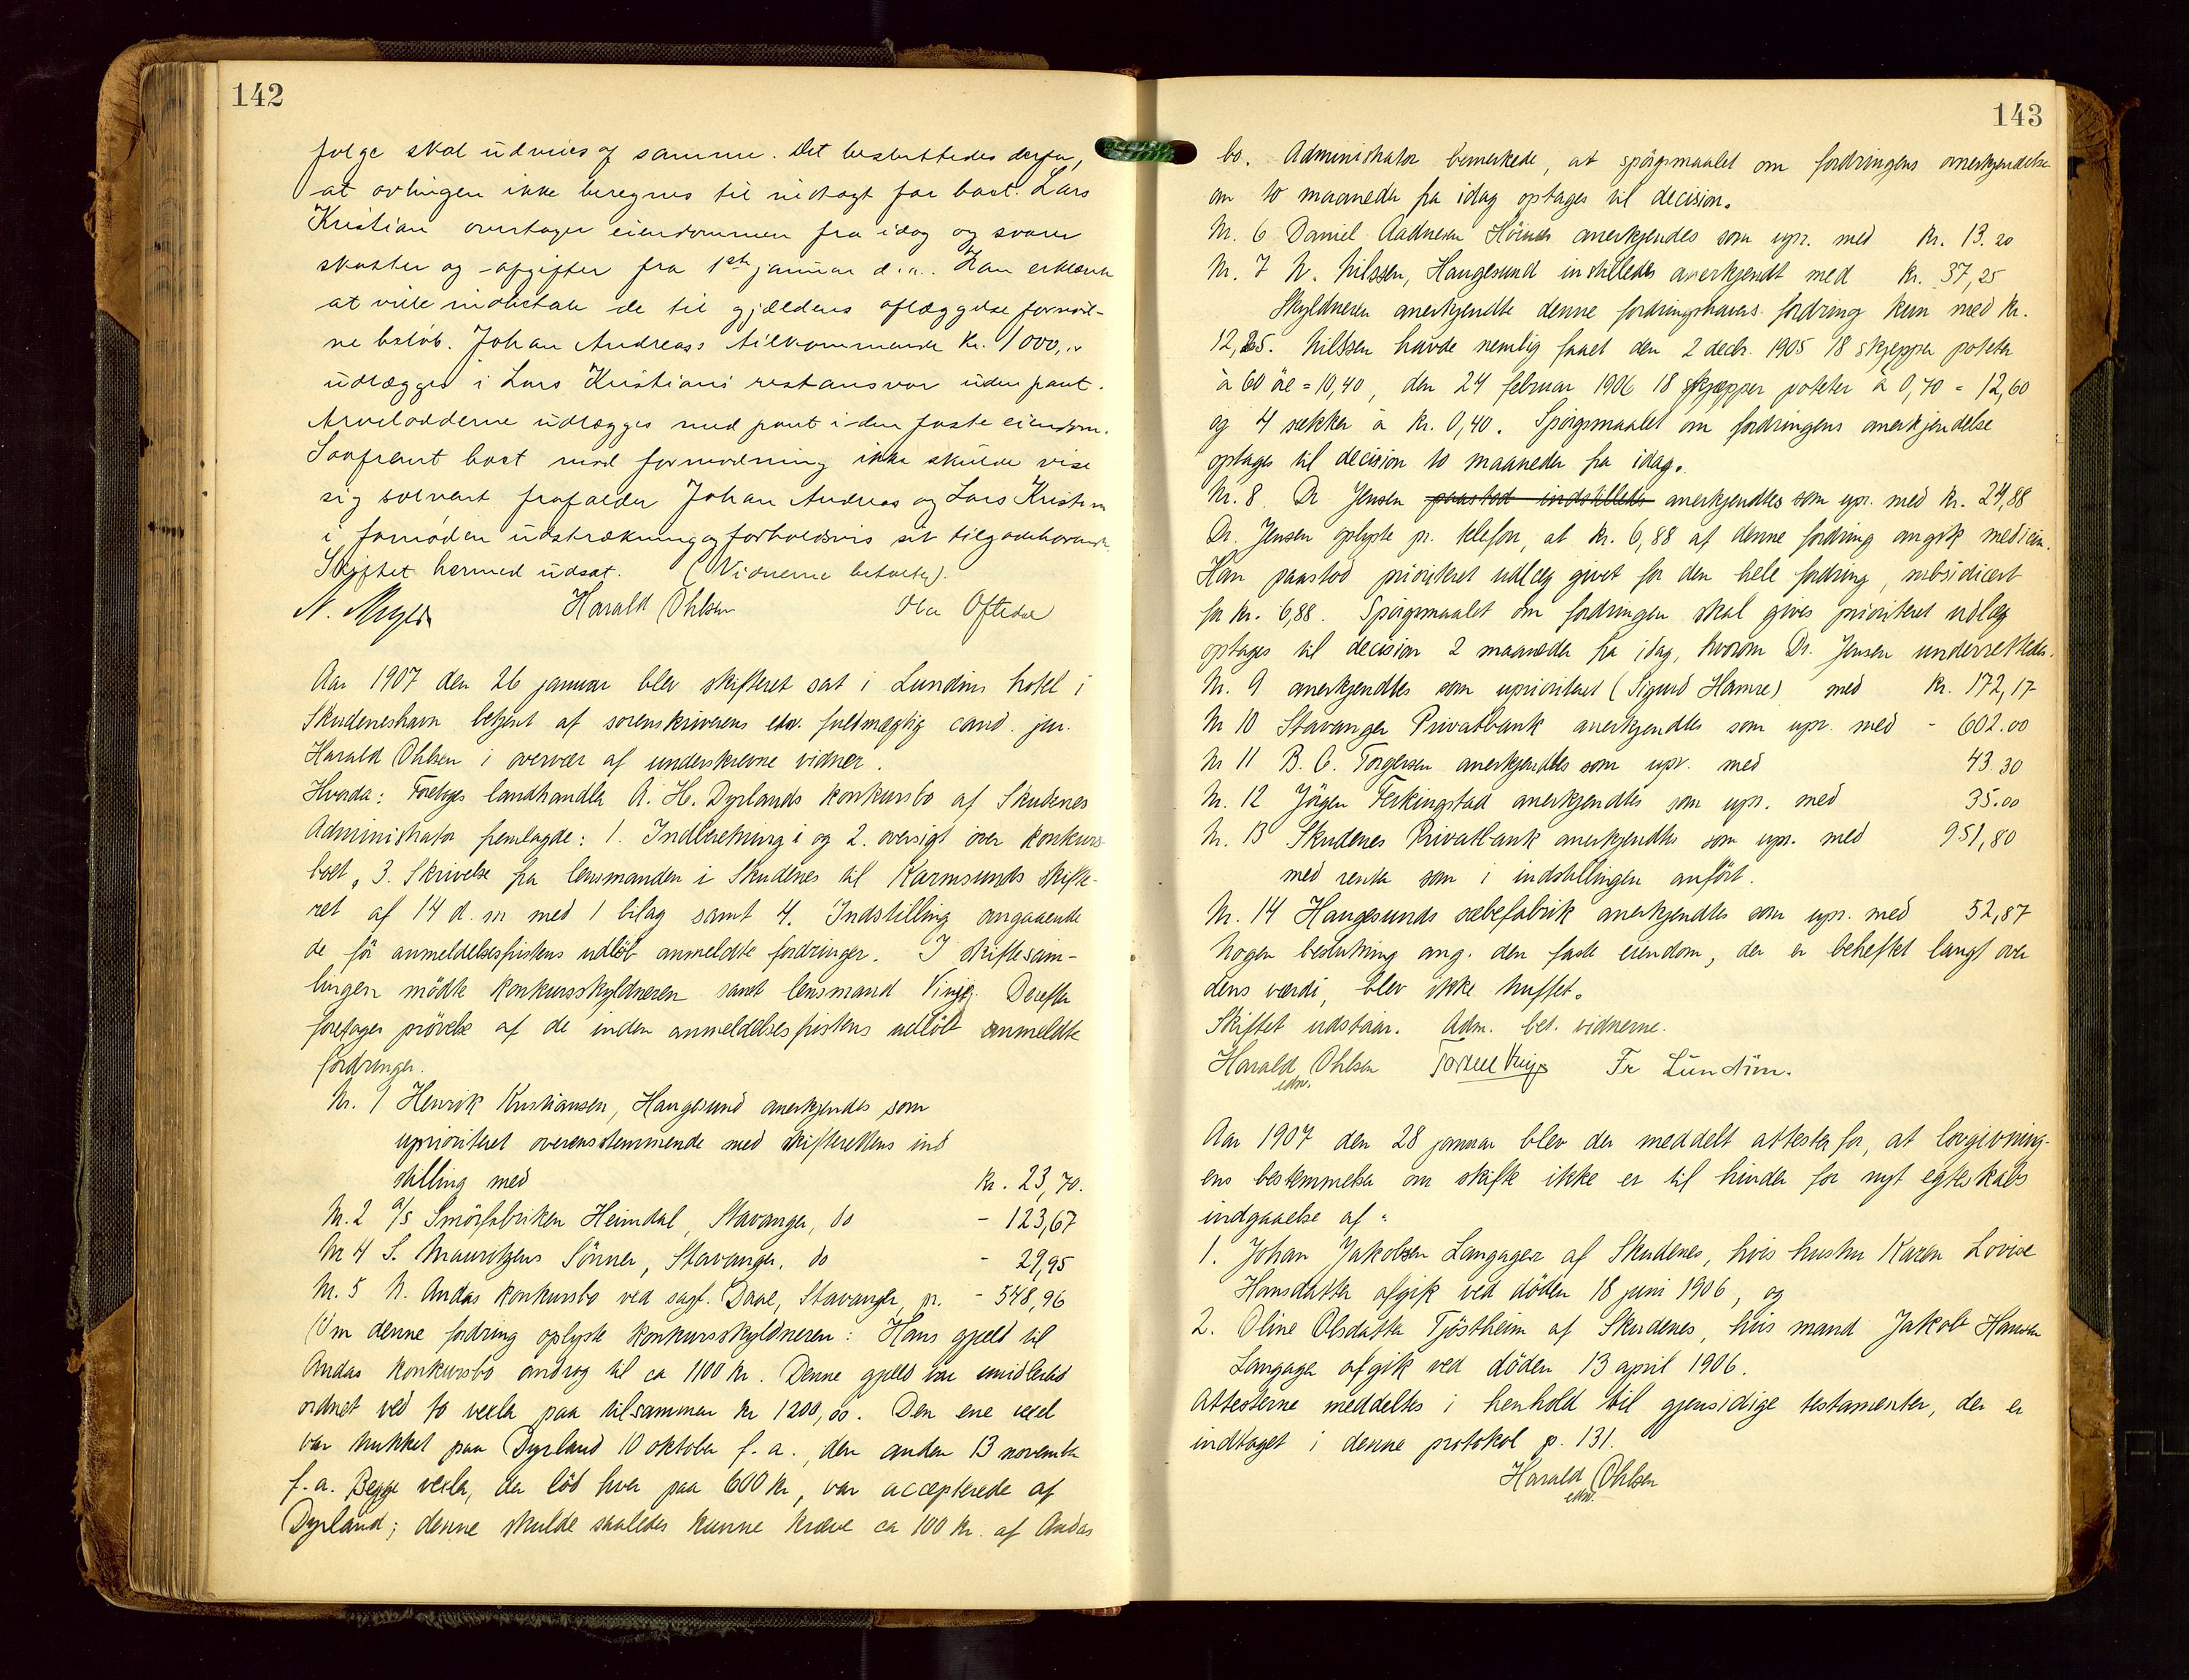 142
følge skal udvises af samme. Det besluttedes derfor,
at avlingen ikke beregnes til indtægt for boet. Lars
Kristian overtager eiendommen fra idag og svarer
skatter og afgifter fra 1ste januar d. a. Han erklærte
at ville indbetale de til gjældens aflæggelse fornød-
ne beløb. Johan Andreas's tilkommende Kr. 1000,00
udlægges i Lars Kristians restansvar uden pant.
Arvelodderne udlægges med pant i den faste eiendom.
Saafremt boet mod formodning ikke skulde vise
sig solvent frafalder Johan Andreas og Lars Kristian
i fornøden udstrækning og forholdsvis sit tilgodehavende.
Skiftet hermed udsat. (Vidnerne betalte).
N. Meyer Harald Ohlsen Ola Oftedal
Aar 1907 den 26 januar blev skifteret sat i Lundins hotel i
Skudeneshavn betjent af sorenskriverens edsv. fuldmægtig cand. jur.
Harald Ohlsen i overvær af underskrevne vidner.
Hvorda: Foretoges landhandler A. H. Dyrlands konkursbo af Skudenes
Administrator fremlagde: 1. Indberetning i og 2. oversigt over konkurs-
boet, 3. Skrivelse fra lensmanden i Skudenes til Karmsunds skifte-
ret af 14 d. m med 1 bilag samt 4. Indstilling angaaende
de før anmeldelsesfristens udløb anmeldte fordringer. I skiftesam-
lingen mødte konkursskyldneren samt lensmand Vinje. Derefter
foretages prøvelse af de inden anmeldelsesfristens udløb anmeldte
fordringer.
Nr. 1 Henrik Kristiansen, Haugesund anerkjendes som
uprioriteret overensstemmende med skifterettens ind
stilling med Kr. 23,70.
Nr. 2 a/s Smørfabriken Heimdal, Stavanger, do - 123,67
Nr 4 S. Mauritzens Sønner, Stavanger, do - 29,95
Nr. 5 N. Andas konkursbo ved sagf. Daae, Stavanger, pr. - 548,96
Om denne fordring oplyste konkursskyldneren: Hans gjæld til
Andas konkursbo androg til ca 1100 kr. Denne gjæld var imidlertid
ordnet ved to vexler paa tilsammen kr 1200,00. Den ene vexel
var trukket paa Dyrland 10 oktober f. a., den anden 13 november
f. a. Begge vexler, der lød hver paa 600 kr, var accepterede af
Dyrland; denne skulde saaledes kunne kræve ca 100 kr. af Andas
143
bo. Administrator bemerkede, at spørgsmaalet om fordringens anerkjendelse
om to maaneder fra idag optages til decision.
Nr. 6 Daniel Aadnesen anerkjendes som upr. med Kr. 13.20
Nr. 7 N. Nilssen, Haugesund instilledes anerkjendt med Kr. 37,25
Skyldneren anerkjendte denne fordringshavers fordring kun med kr.
12,25. Nilssen havde nemlig faaet den 2 decbr. 1905 18 skjepper poteter
à 60 øre = 10,40, den 24 februar 1906 18 skjæpper poteter à 0,70 = 12,60
og 4 sækker à kr. 0,40. Spørgsmaalet om fordringens anerkjendelse
optages til decision to maaneder fra idag.
Nr. 8. Dr Jensen paastod indstilledes anerkjendtes som upr. med kr. 24,88
Dr. Jensen oplyste pr. telefon, at kr. 6,88 af denne fordring angik medicin.
Han paastod prioriteret udlæg givet for den hele fordring, subsidiært
for kr. 6,88. Spørgsmaalet om fordringen skal gives prioriteret udlæg
optages til decision 2 maaneder fra idag, hvorom Dr. Jensen underrettedes.
Nr. 9 anerkjendtes som uprioriteret (Sigurd Hamre) med Kr. 172,17
Nr 10 Stavanger Privatbank anerkjendtes som upr. med - 602.00
Nr 11 B. C. Torgersen anerkjendtes som upr. med 43.30
Nr. 12 Jörgen Ferkingstad anerkjendtes som upr. med 35.00
Nr. 13 Skudenes Privatbank anerkjendtes som upr. med 951,80
med renter som i indstillingen anført.
Nr. 14 Haugesunds sæbefabrik anerkjendtes som upr. med 52,87
Nogen beslutning ang. den faste eiendom, der er beheftet langt over
dens værdi, blev ikke truffet.
Skiftet udstaar. Adm. bet. vidnerne.
Harald Ohlsen Torkel Vinje Fr Lundin.
edsv.
Aar 1907 den 28 januar blev der meddelt attester for, at lovgivning-
ens bestemmelser om skifte ikke er til hinder for nyt egteskabs
indgaaelse af:
1. Johan Jakobsen Langager af Skudenes, hvis hustru Karen Lovise
Hansdatter afgik ved döden 18 juni 1906, og
2. Oline Olsdatter Tjöstheim af Skudenes, hvis mand Jakob Hansen
Langager afgik ved döden 13 april 1906.
Attesterne meddeltes i henhold til gjensidige testamenter, der er
indtaget i denne protokol p. 131.
Harald Ohlsen
edsv.